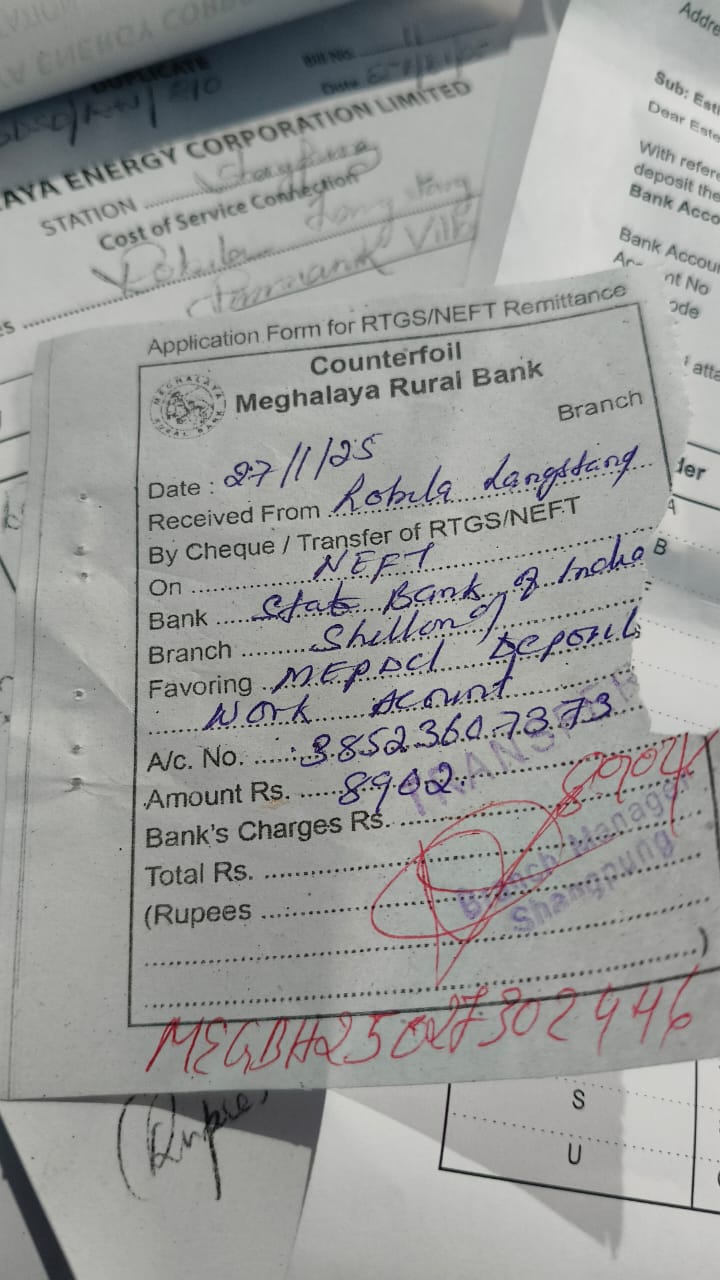 DUPLICATE
Bill No. 11
AYA ENERGY CORPORATION LIMITED
STATION
Cost of Service Connection
Addre
Sub: Esti
Dear Este
With refere
deposit the
Bank Acco
Bank Accou
nt No
ode
atta
der
A
B
Application Form for RTGS/NEFT Remittance
Counterfoil
Meghalaya Rural Bank
MEGHALAYA RURAL BANK
Branch
Date : 27/1/25
Received From Robila Langstang
By Cheque / Transfer of RTGS/NEFT
On NEFT
Bank State Bank of India
Branch Shillong
Favoring MEPDCL Deposit
Work Account
A/c. No. : 38523607373
Amount Rs. 8902
TRANSFER
Bank's Charges Rs.
Total Rs.
(Rupees
)
Branch Manager
Shangpung
MEGBH25027302446
(Rupee
S
U